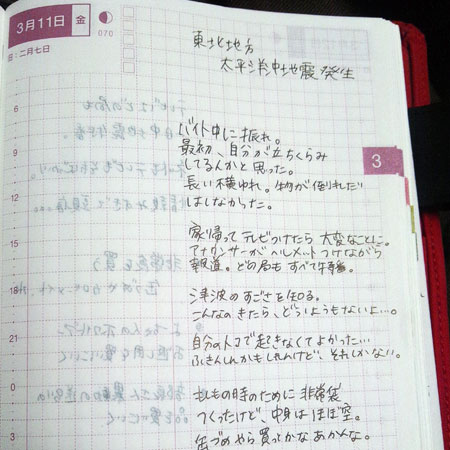 3月11日 金
070
旧:二月七日
3
東北地方
太平洋沖地震発生
バイト中に揺れ。
最初、自分が立ちくらみ
してるんかと思った。
長い横ゆれ。物が倒れたり
はしなかった。
家帰ってテレビつけたら大変なことに。
アナウンサーがヘルメットつけながら
報道。どの局もすべて特番。
津波のすごさを知る。
こんなのきたら、どうしようもないよ…。
自分のトコで起きなくてよかった…
ふきんしんかもしれんけど、それしかない。
もしもの時のために非常袋
つくったけど、中身はほぼ空。
缶づめやら買ってかなあかんな。
6
9
12
15
18
21
0
3